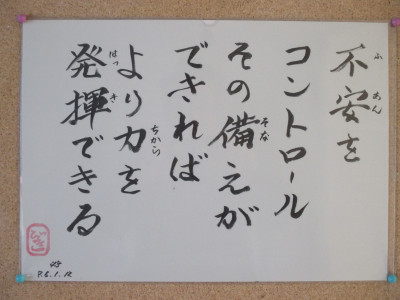 不安を
コントロール
その備えが
できれば
より力を
発揮できる
ふあん
そな
ちから
はっき